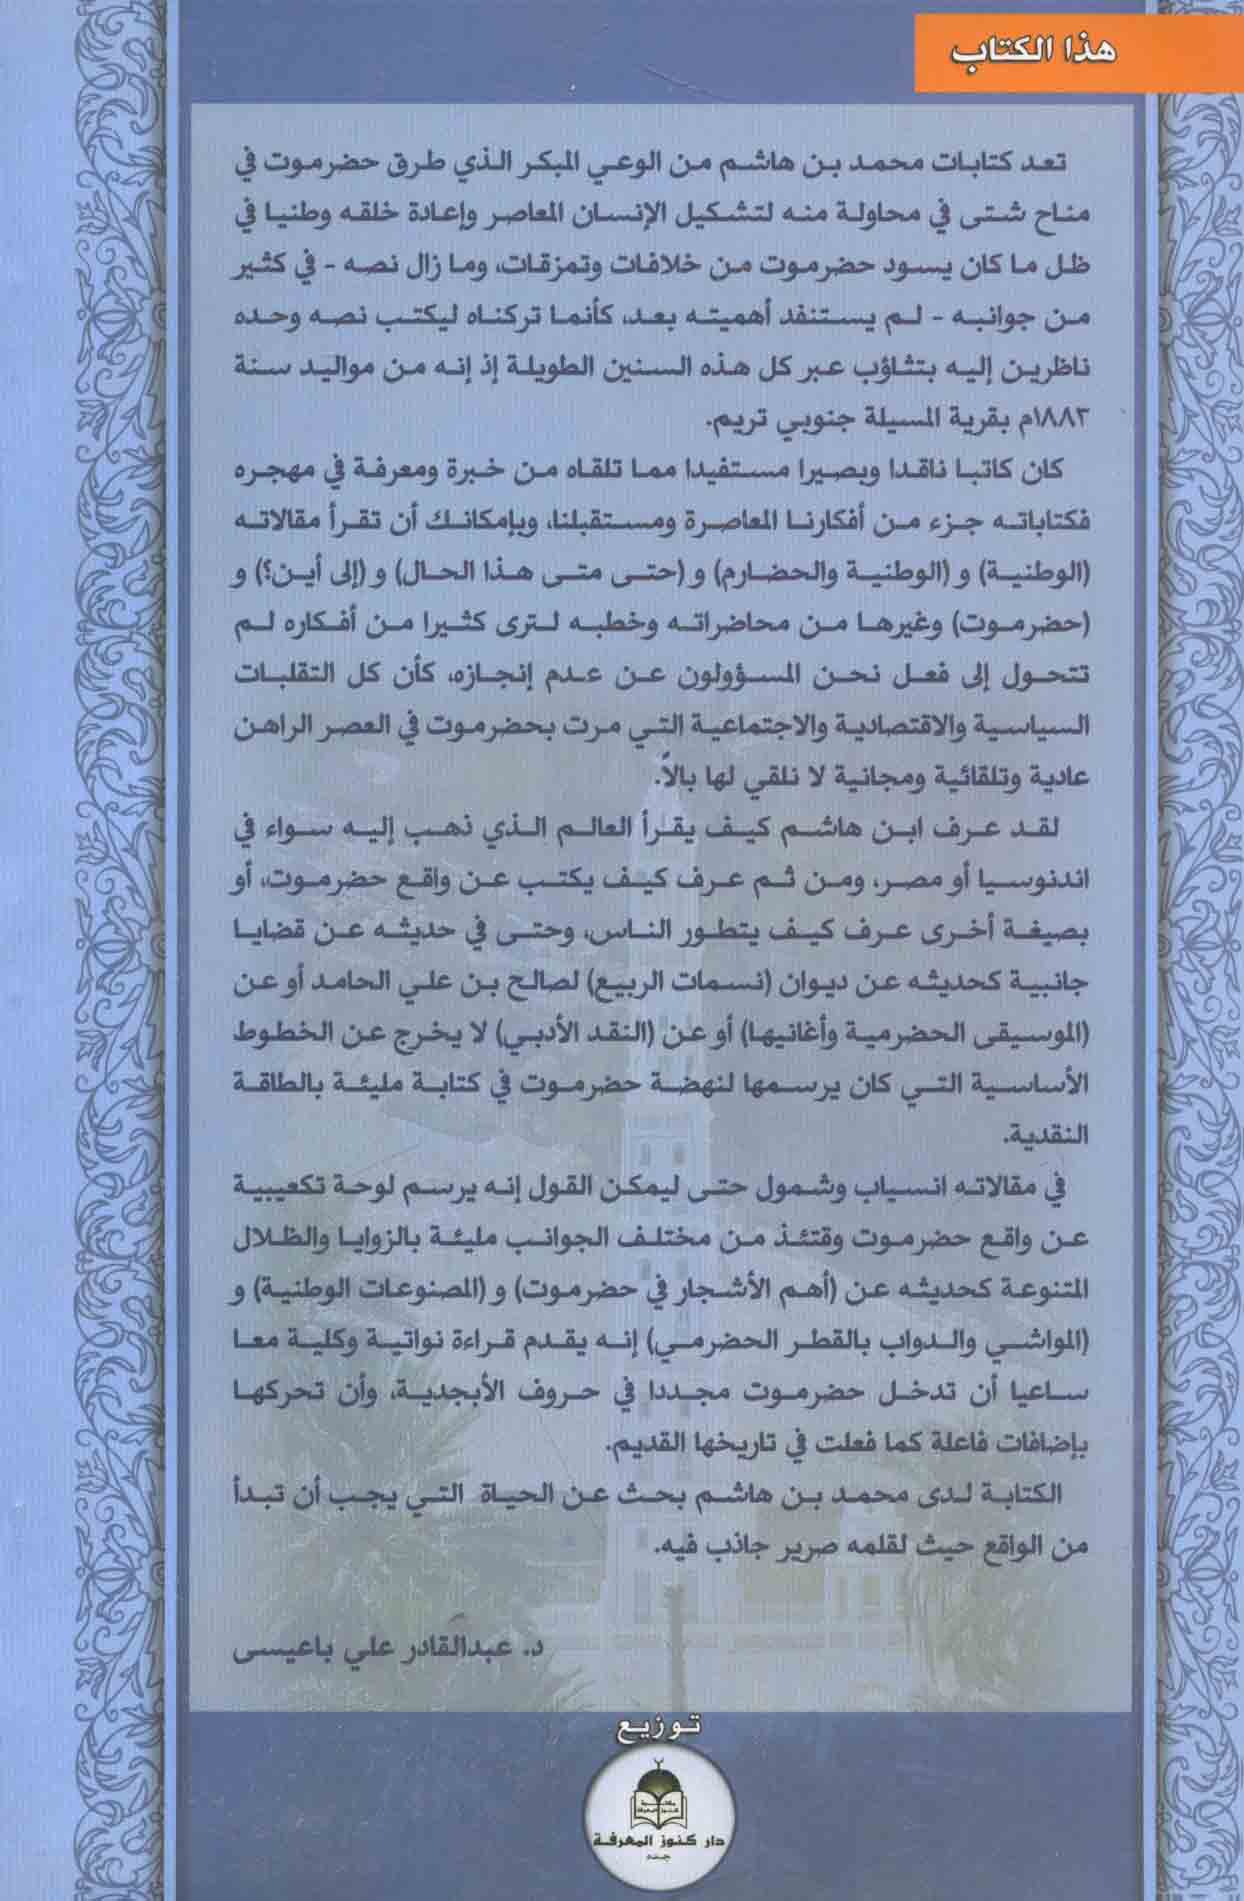 هذا الكتاب
تعد كتابات محمد بن هاشم من الوعي المبكر الذي طرق حضرموت في
مناح شتى في محاولة منه لتشكيل الإنسان المعاصر وإعادة خلقه وطنيا في
ظل ما كان يسود حضرموت من خلافات وتمزقات، وما زال نصه - في كثير
من جوانبه - لم يستنفد أهميته بعد، كأنما تركناه ليكتب نصه وحده
ناظرين إليه بتثاؤب عبر كل هذه السنين الطويلة إذ إنه من مواليد سنة
١٨٨٣م بقرية المسيلة جنوبي تريم.
كان كاتبا ناقدا وبصيرا مستفيدا مما تلقاه من خبرة ومعرفة في مهجره
فكتاباته جزء من أفكارنا المعاصرة ومستقبلنا، وبإمكانك أن تقرأ مقالاته
(الوطنية) و (الوطنية والحضارم) و (حتى متى هذا الحال) و (إلى أين؟) و
(حضرموت) وغيرها من محاضراته وخطبه لترى كثيرا من أفكاره لم
تتحول إلى فعل نحن المسؤولون عن عدم إنجازه، كأن كل التقلبات
السياسية والاقتصادية والاجتماعية التي مرت بحضرموت في العصر الراهن
عادية وتلقائية ومجانية لا نلقي لها بالاً.
لقد عرف ابن هاشم كيف يقرأ العالم الذي ذهب إليه سواء في
اندنوسيا أو مصر، ومن ثم عرف كيف يكتب عن واقع حضرموت، أو
بصيغة أخرى عرف كيف يتطور الناس، وحتى في حديثه عن قضايا
جانبية كحديثه عن ديوان (نسمات الربيع) لصالح بن علي الحامد أو عن
(الموسيقى الحضرمية وأغانيها) أو عن (النقد الأدبي) لا يخرج عن الخطوط
الأساسية التي كان يرسمها لنهضة حضرموت في كتابة مليئة بالطاقة
النقدية.
في مقالاته انسياب وشمول حتى ليمكن القول إنه يرسم لوحة تكعيبية
عن واقع حضرموت وقتئذ من مختلف الجوانب مليئة بالزوايا والظلال
المتنوعة كحديثه عن (أهم الأشجار في حضرموت) و (المصنوعات الوطنية) و
(المواشي والدواب بالقطر الحضرمي) إنه يقدم قراءة نواتية وكلية معا
ساعيا أن تدخل حضرموت مجددا في حروف الأبجدية، وأن تحركها
بإضافات فاعلة كما فعلت في تاريخها القديم.
الكتابة لدى محمد بن هاشم بحث عن الحياة التي يجب أن تبدأ
من الواقع حيث لقلمه صرير جاذب فيه.
د. عبدالقادر علي باعيسى
توزيع
مكتبة
كنوز المعرفة
دار كنوز المعرفة
جدة